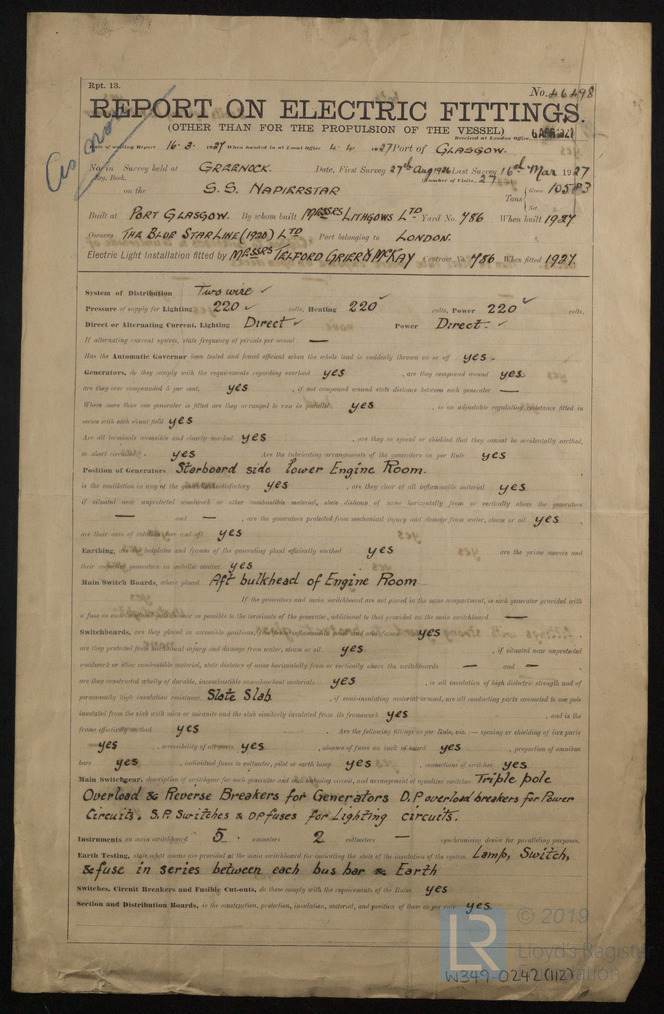 Rpt. 13.
No. 46498
REPORT ON ELECTRIC FITTINGS.
(OTHER THAN FOR THE PROPULSION OF THE VESSEL)
Received at London Office
6 APR 1927
Date of writing Report 16. 3. 1927 When handed in at Local Office 4. 4. 1927 Port of GLASGOW.
No. in Survey held at GREENOCK. Date, First Survey 27th Aug 1926 Last Survey 16th Mar 1927
Reg. Book. Number of Visits 27
on the S.S. NAPIERSTAR Tons Gross 10583
Net
Built at PORT GLASGOW. By whom built MESSRS LITHGOWS LTD Yard No. 786 When built 1927
Owners THE BLUE STAR LINE (1920) LTD Port belonging to LONDON.
Electric Light Installation fitted by MESSRS TELFORD GRIER & McKAY Contract No. 786 When fitted 1927.
System of Distribution Two wire ✓
Pressure of supply for Lighting 220 ✓ volts, Heating 220 ✓ volts, Power 220 ✓ volts.
Direct or Alternating Current, Lighting Direct ✓ Power Direct. ✓
If alternating current system, state frequency of periods per second —
Has the Automatic Governor been tested and found efficient when the whole load is suddenly thrown on or off yes.
Generators, do they comply with the requirements regarding overload yes, are they compound wound yes.
are they over compounded 5 per cent. yes, if not compound wound state distance between each generator —
Where more than one generator is fitted are they arranged to run in parallel yes, is an adjustable regulating resistance fitted in
series with each shunt field yes
Are all terminals accessible and clearly marked yes, are they so spaced or shielded that they cannot be accidentally earthed,
or short circuited yes Are the lubricating arrangements of the generators as per Rule yes
Position of Generators Starboard side lower Engine Room.
is the ventilation in way of the generators satisfactory yes, are they clear of all inflammable material yes
if situated near unprotected woodwork or other combustible material, state distance of same horizontally from or vertically above the generators
— and —, are the generators protected from mechanical injury and damage from water, steam or oil yes,
are their axes of rotation fore and aft yes
Earthing, are the bedplates and frames of the generating plant efficiently earthed yes are the prime movers and
their respective generators in metallic contact yes
Main Switch Boards, where placed Aft bulkhead of Engine Room
If the generators and main switchboard are not placed in the same compartment, is each generator provided with
a fuse on each pole as near as possible to the terminals of the generator, additional to that provided on the main switchboard —
Switchboards, are they placed in accessible positions, free from inflammable gases and acid fumes yes
are they protected from mechanical injury and damage from water, steam or oil yes, if situated near unprotected
woodwork or other combustible material, state distance of same horizontally from or vertically above the switchboards — and —
are they constructed wholly of durable, incombustible non-absorbent materials yes, is all insulation of high dielectric strength and of
permanently high insulation resistance Slate Slab, if semi-insulating material is used, are all conducting parts connected to one pole
insulated from the slab with mica or micanite and the slab similarly insulated from its framework yes, and is the
frame effectively earthed yes Are the following fittings as per Rule, viz.:— spacing or shielding of live parts
yes, accessibility of all parts yes, absence of fuses on back of board yes, proportion of omnibus
bars yes, individual fuses to voltmeter, pilot or earth lamp yes, connections of switches yes
Main Switchgear, description of switchgear for each generator and each outgoing circuit, and arrangement of equaliser switches Triple pole
Overload & Reverse Breakers for Generators D.P overload breakers for Power
Circuits. S.P. Switches & D.P fuses for Lighting circuits.
Instruments on main switchboard 5 ammeters 2 voltmeters — synchronising device for paralleling purposes.
Earth Testing, state what means are provided at the main switchboard for indicating the state of the insulation of the system Lamp, Switch,
& fuse in series between each bus bar & Earth
Switches, Circuit Breakers and Fusible Cut-outs, do these comply with the requirements of the Rules yes
Section and Distribution Boards, is the construction, protection, insulation, material, and position of these as per rule yes.
LR © 2019
Lloyd's Register
Foundation
W349-0242 (1/2)